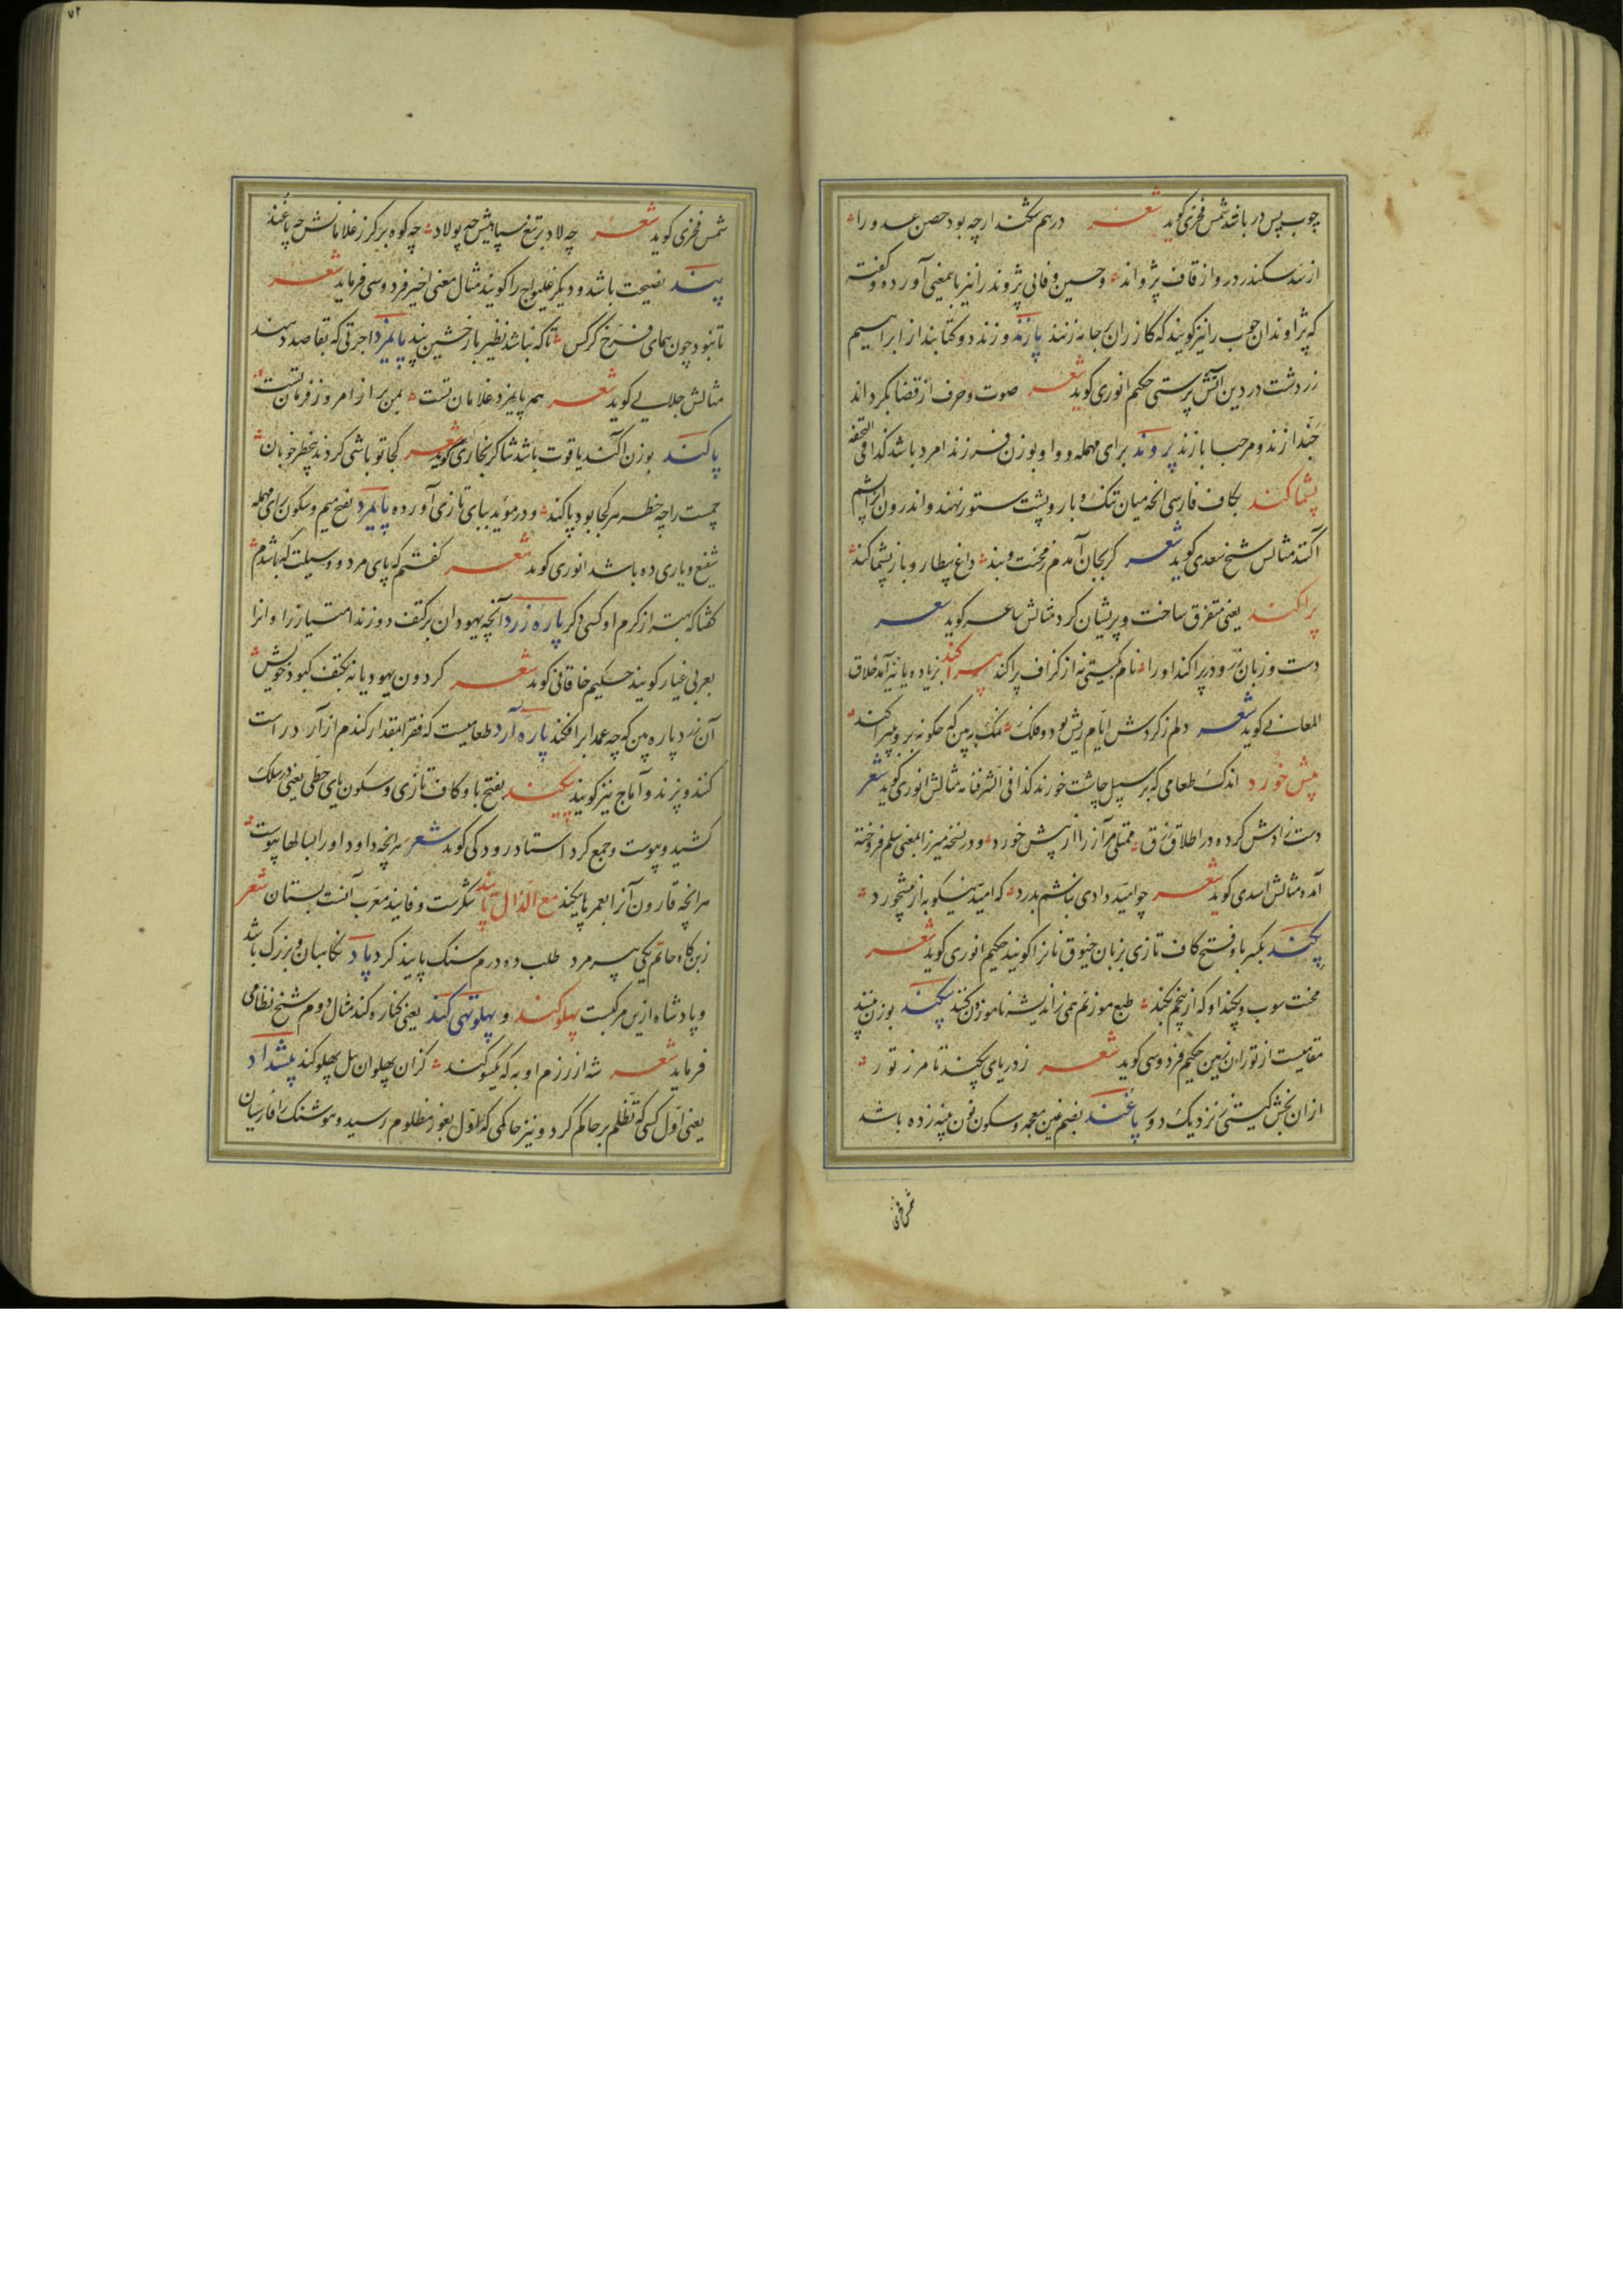 چوب پس در باشد شمس فخری گوید شعر در هم شکند ارچه بود حصن عدو را
از سد سکندر در و از قاف پژواند وحسین وفائی پژوند را نیز باینمعنی آورده وگفته
که پژاوند ان چوب را نیز گویند که کازران بر جامه زنند پازند و زند دو کتابند از ابراهیم
زردشت در دین اتش پرستی حکیم انوری گوید شعر صوت و حرف از قضا بکرداند
حبذا زند و مرحبا پازند پروند برای مهمله و واو بوزن فرزند امرود باشد کذا فی التحفه
پشماکند بکاف فارسی انچه میان تنک وبار و پشت ستور نهند و اندرون انرا پشم
اکنند مثالش شیخ سعدی گوید شعر کر بجان آمدم ز محنت وبند داغ بیطار و بار پشماکند
پراکند یعنی متفرق ساخت و پریشان کرد مثالش شاعر گوید شعر
دست و زبان زر و در پراکند او را نام کیتی نه از کزاف پراکند پیراکند بزیاده یا نیز آمد خلاق
المعانی گوید شعر دلم ز کردش ایام ریش بود و فلک نمک به بین که چکونه برو پیراکند
پیش خورد اندک طعامی که بر سبیل چاشت خورند کذا فی الشرفنامه مثالش انوری گوید شعر
دست رادش کرده در اطلاق رزق ممتلی مر آز را از پیش خورد و در نسخه میرزا بمعنی سلم فروخته
آمده مثالش اسدی گوید شعر چو امید دادی نباشم بدرد که امید نیکو به از پیشخورد
پکند بکسر با و فتح کاف تازی بزبان خیوق نانرا گویند حکیم انوری گوید شعر
محنت سوب و پکند او که از بیخم بکند طبع موزونم همی ز اندیشه ناموزون کند پیکند بوزن پیبند
مقامیست از توران زمین حکیم فردوسی گوید شعر ز دریای پیکند تا مرز تور
از ان بخش کیتی ز نزدیک و دور پاغند بضم غین معجمه وسکون نون پنبه زده باشد
شمس فخری
شمس فخری گوید شعر چه لاد بر تیغ سپاهیش چه پولاد چه کوه بر کرز غلامانش چه پاغند
پند نصیحت باشد و دیکر غلیواج را گویند مثال معنی اخیر فردوسی فرماید شعر
تا نبود چون همای فرخ کرکس تا که نباشد نظیر باز خشین پند پایمزد اجرتی که بقاصد دهند
مثالش جلالی گوید شعر هم پایمزد غلامان تست بمن بر از امروز فرمان تست
پاکند بوزن اکند یاقوت باشد شاکر بخاری گوید شعر کجا تو باشی کردند بیخطر خوبان
جمست را چه خطر هر کجا بود پاکند و در مؤید ببای تازی آورده پایمرد بفتح میم وسکون رای مهمله
شفیع و یاری ده باشد انوری گوید شعر گفتم که پای مرد و وسیلت که باشدم
گفتا که بهتر از کرم او کسی دکر پاره زرد آنچه یهودان بر کتف دوزند امتیاز را و انرا
بعربی غیار گویند حکیم خاقانی گوید شعر کردون یهودیانه بکتف کبود خویش
آن زرد پاره بین که چه عمدا برافکند پاره آرد طعامیست که فقرا بمقدار کندم از آرد راست
کنند و پزند و آماج نیز گویند پیکند بفتح با و کاف تازی وسکون یای حطی یعنی در سلک
کشید و پیوست و جمع کرد استاد رودکی گوید شعر هر انچه داود او را بسالها پیوست
هر انچه قارون آنرا بعمر پیکند مع الذال پانیذ شکرست و فانیذ معرب آنست بستان شعر
ز بن کاه حاتم یکی پیر مرد طلب ده درم سنک پانیذ کرد پاد نکاهبان و بزرک باشد
و پادشاه ازین مرکبست پهلو کند و پهلو تهی کند یعنی کناره کند مثال دوم شیخ نظامی
فرماید شعر شه از رزم او به که یکسو کند کزان پهلوان پیل پهلو کند پیشداد
یعنی اول کسی که تظلم بر حاکم کرد و نیز حاکمی که اول بغور مظلوم رسید و هوشنک را فارسیان
۷۲